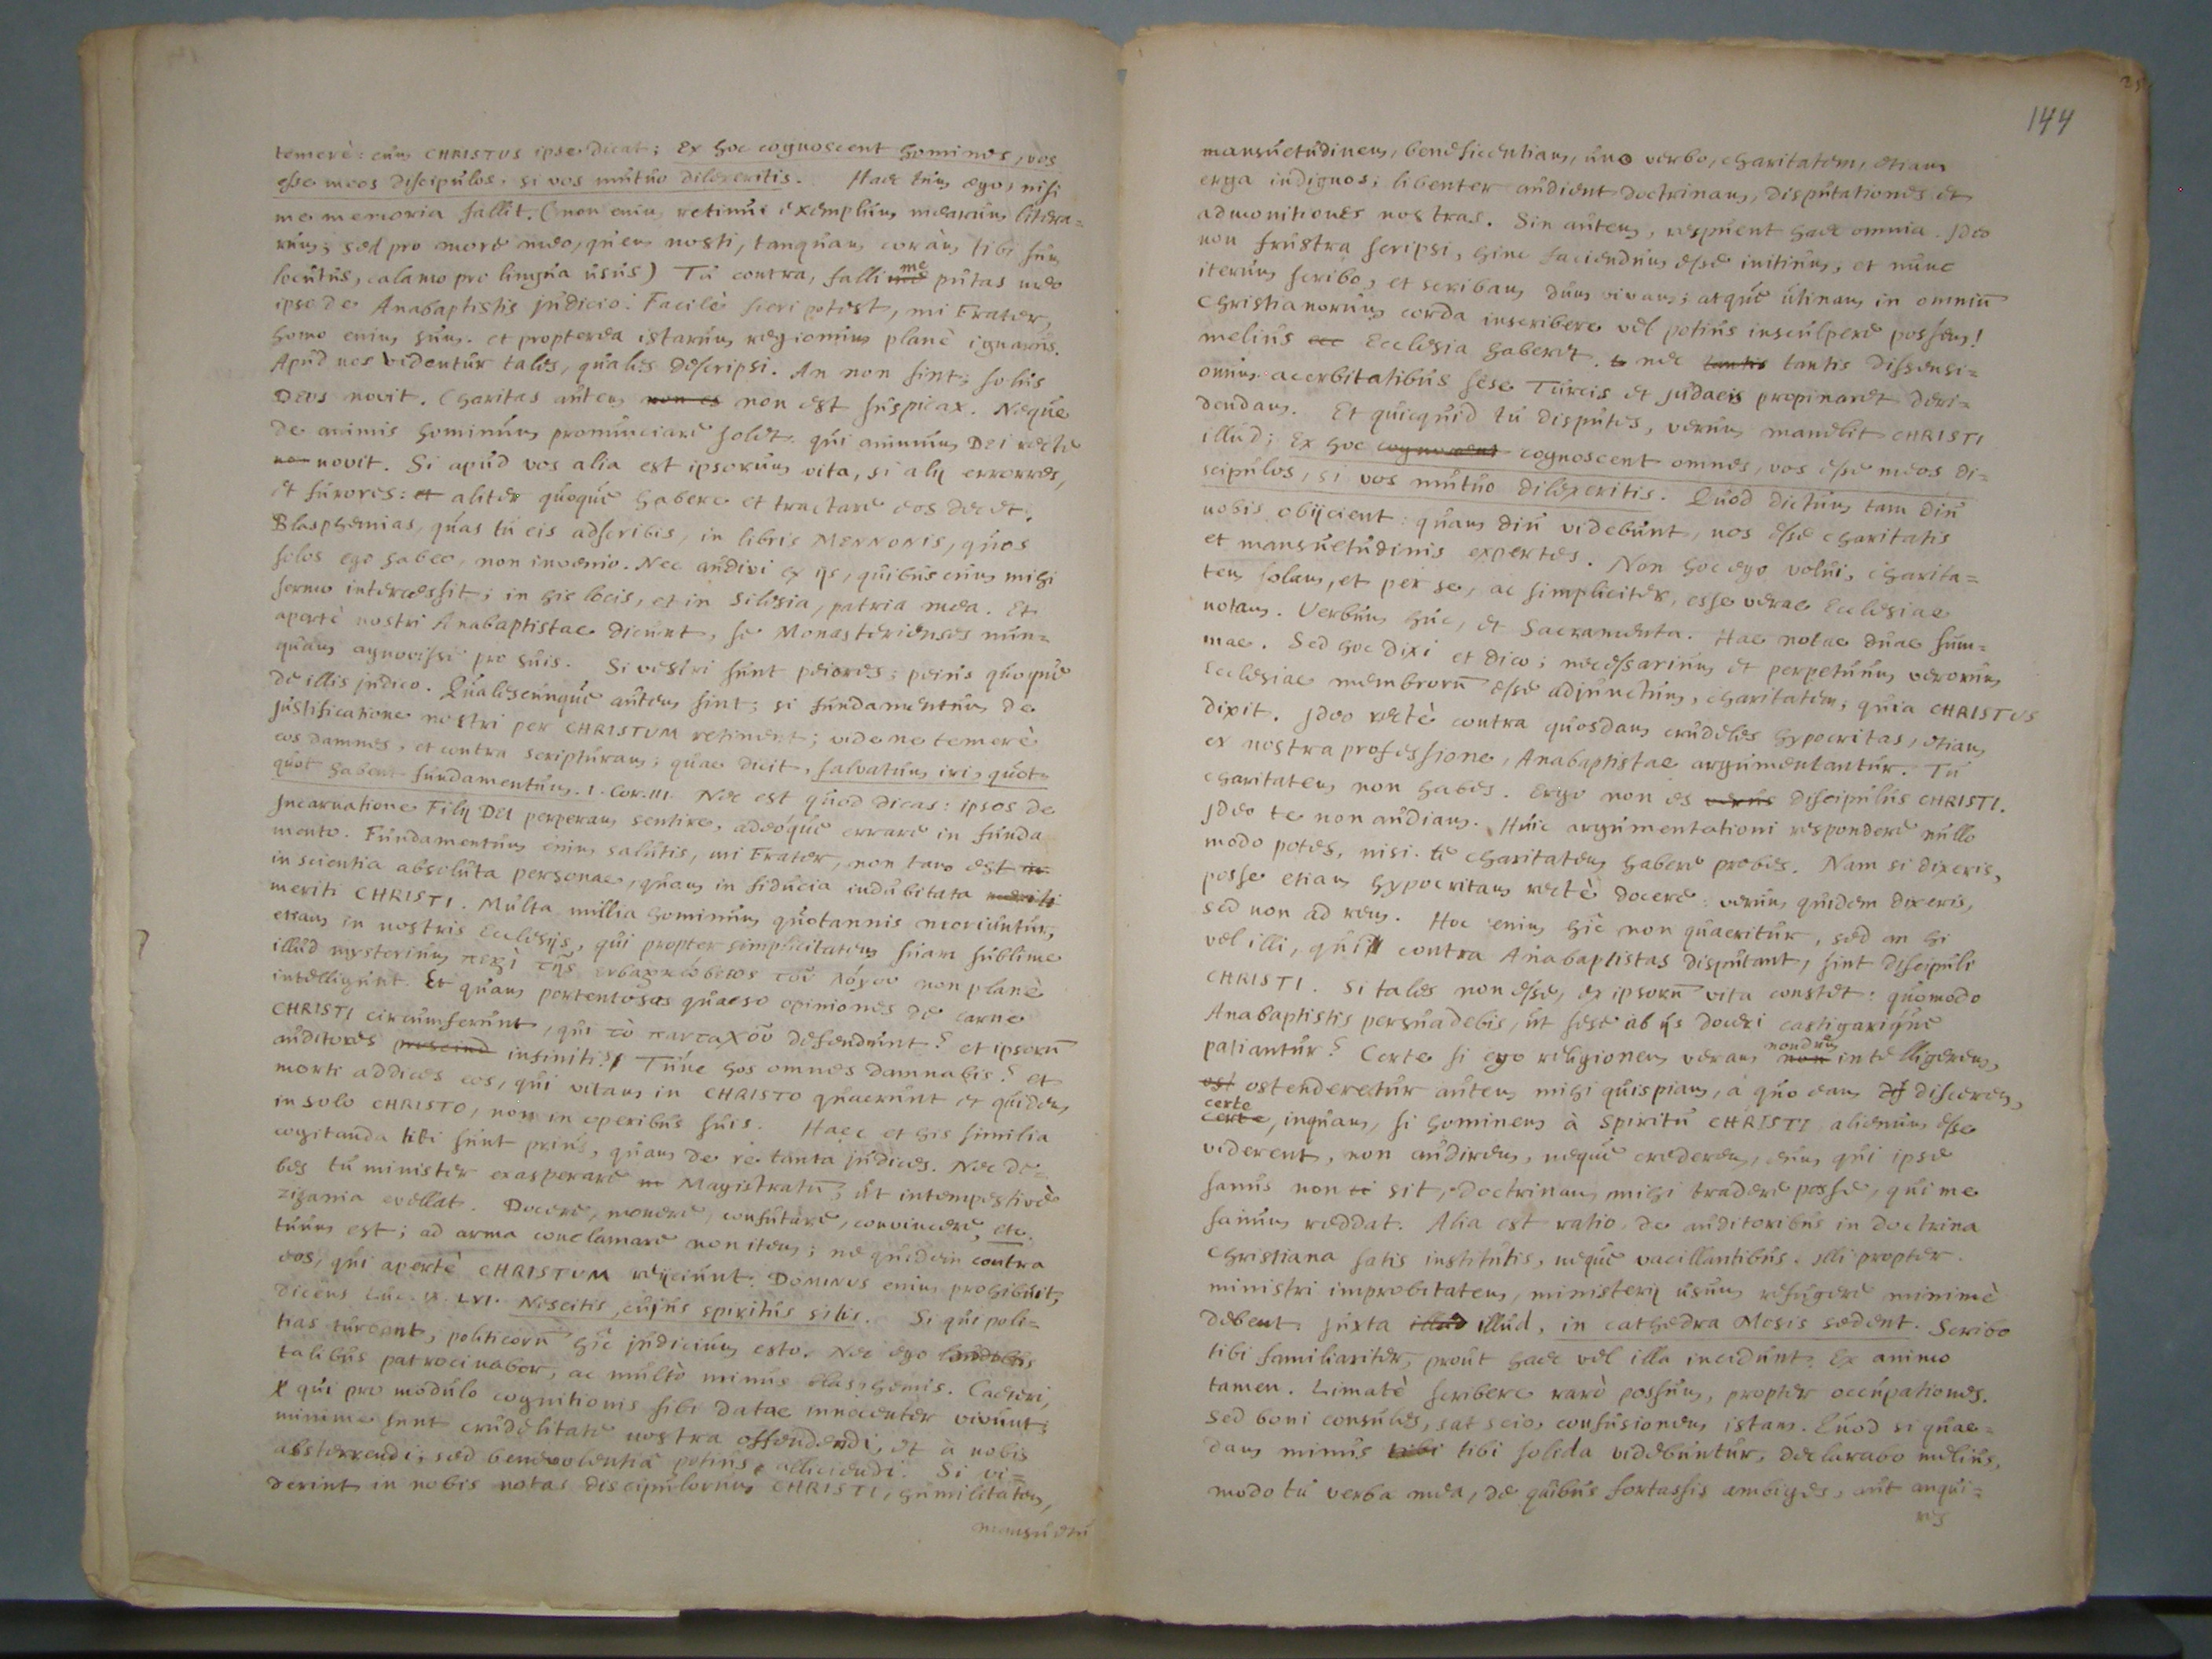 temerè: cùm CHRISTUS ipse dicat; Ex hoc cognoscent homines, vos
esse meos discipulos, si vos mutuo dilexeritis. Haec tum ego, nisi
me memoria fallit. (non enim retinui exemplum mearum litera=
rum; sed pro more meo, quem nosti, tanquam coràm tibi sum
locutus, calamo pro lingua usus) Tu contra, falli me putas meo
ipse de Anabaptistis judicio. Facilè fieri potest, mi Frater,
homo enim sum. et propterea istarum regionum planè ignarus.
Apud nos videntur tales, quales descripsi. An non sint; solus
DEUS novit. Charitas autem non es non est suspicax. Neque
de animis hominum pronunciare solet. qui animum DEI recte
non novit. Si apud vos alia est ipsorum vita, si alij errorres,
et furores: et aliter quoque habere et tractare eos decet.
Blasphemias, quas tu eis adscribis, in libris MENNONIS, quos
solos ego habeo, non invenio. Nec audivi ex ijs, quibus cum mihi
sermo intercessit; in his locis, et in Silesia, patria mea. Et
apertè nostri Anabaptistae dicunt, se Monasterienses nun=
quam agnovisse pro suis. Si vestri sunt peiores; peius quoque
de illis judico. Qualescunque autem sint; si fundamentum de
justificatione nostri per CHRISTUM retinent; vide ne temerè
eos damnes, et contra scripturam; quae dicit, salvatum iri, quot=
quot habent fundamentum. I. Cor. III. Nec est quod dicas: ipsos de
Incarnatione Filij DEI perperam sentire, adeóque errare in funda
mento. Fundamentum enim salutis, mi Frater, non tam est in
in scientia absoluta personae, quam in fiducia indubitata meriti
meriti CHRISTI. Multa millia hominum quotannis moriuntur,
etiam in nostris Ecclesijs, qui propter simplicitatem suam sublime
illud mysterium περὶ τῆς ἐνσαρκώσεως τοῦ λόγου non planè
intelligunt. Et quam portentosas quaeso opiniones de carne
CHRISTI circumferunt, qui τὸ πανταχοῦ defendunt? et ipsorũ
auditores infiniti? Tune hos omnes damnabis? et
morti addices eos, qui vitam in CHRISTO quaerunt et quidem
in solo CHRISTO, non in operibus suis. Haec et his similia
cogitanda tibi sunt prius, quam de re tanta judices. Nec de=
bes tu minister exasperare Magistratũ, ut intempestivè
zizania evellat. Docere, monere, confutare, convincere, etc.
tuum est; ad arma conclamare non item; ne quidem contra
eos, qui apertè CHRISTUM rejiciunt. DOMINUS enim prohibuit,
dicens Luc. IX. LVI. Nescitis, cujus spiritus sitis. Si qui poli=
tias turbant, politicorũ hîc judicium esto. Nec ego
talibus patrocinabor, ac multò minus blasphemis. Caeteri,
qui pro modulo cognitionis sibi datae innocenter vivunt;
minime sunt crudelitate nostra offendendi, et à nobis
absterrendi; sed benevolentiâ potius alliciendi. Si vi=
derint in nobis notas discipulorum CHRISTI, humilitatem,
mansuetu
144
mansuetudinem, beneficentiam, uno verbo, charitatem, etiam
erga indignos; libenter audient doctrinam, disputationes et
admonitiones nostras. Sin autem, respuent haec omnia. Ideo
non frustra scripsi, hinc faciendum esse initium, et nunc
iterum scribo, et scribam dum vivam; atque utinam in omniũ
Christianorum corda inscribere vel potius insculpere possem!
melius ecc Ecclesia haberet. nec tantis tantis dissensi=
onum acerbitatibus sese Turcis et Judaeis propinaret deri=
dendam. Et quicquid tu disputes, verum manebit CHRISTI
illud; Ex hoc cognoscent cognoscent omnes, vos esse meos di=
scipulos, si vos mutuo dilexeritis. Quod dictum tam diu
nobis obijcient: quam diu videbunt, nos esse charitatis
et mansuetudinis expertes. Non hoc ego volui, charita=
tem solam, et per se, ac simpliciter, esse verae Ecclesiae
notam. Verbum huc, et Sacramenta. Hae notae duae sum=
mae. Sed hoc dixi et dico; necessarium et perpetuum verorum
Ecclesiae membrorũ esse adjunctum, charitatem, quia CHRISTUS
dixit. Ideo rectè contra quosdam crudeles hypocritas, etiam
ex nostra professione, Anabaptistae argumentantur. Tu
charitatem non habes. Ergo non es verus discipulus CHRISTI.
Ideo te non audiam. Huic argumentationi respondere nullo
modo potes, nisi te charitatem habere probes. Nam si dixeris,
posse etiam hypocritam rectè docere: verum quidem dixeris,
sed non ad rem. Hoc enim hîc non quaeritur, sed an hi
vel illi, qui contra Anabaptistas disputant, sint discipuli
CHRISTI. Si tales non esse, ex ipsorũ vita constet: quomodo
Anabaptistis persuadebis, ut sese ab ijs doceri castigarique
patiantur? Certe si ego religionem veram non nondum intelligerem,
ost ostenderetur autem mihi quispiam, à quo eam discerem,
certe certe, inquam, si hominem à Spiritu CHRISTI alienum esse
viderem, non audirem, neque crederem, eum qui ipse
sanus non sit, doctrinam mihi tradere posse, qui me
sanum reddat. Alia est ratio de auditoribus in doctrina
Christiana satis institutis, neque vacillantibus. Illi propter
ministri improbitatem, ministerij usum refugere minimè
debent. juxta illud illud, in cathedra Mosis sedent. Scribo
tibi familiariter, prout haec vel illa incidunt. Ex animo
tamen. Limatè scribere rarò possum, propter occupationes.
Sed boni consules, sat scio, confusionem istam. Quod si quae=
dam minus tibi tibi solida videbuntur, declarabo melius,
modo tu verba mea, de quibus fortassis ambiges, aut anqui=
res